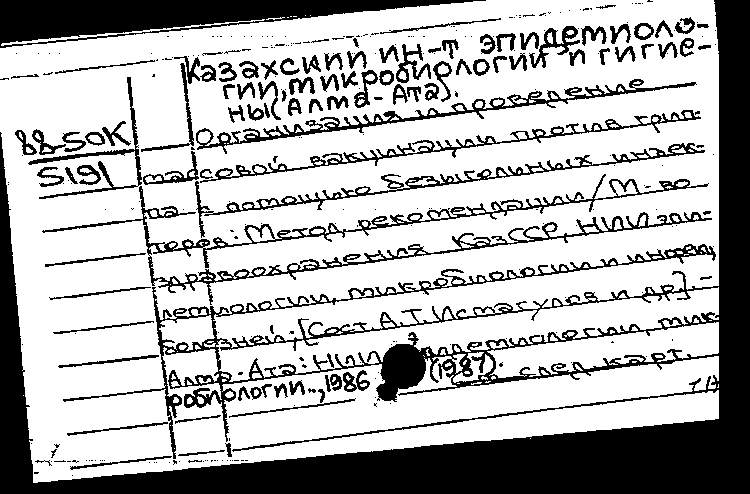 Казахский ин-т эпидемиоло-
гии, микробиологии и гигие-
ны (Алма-Ата).
88-50К
5191
Организация и проведение
массовой вакцинации против грип-
па с помощью безыгольных инъек-
торов: Метод. рекомендации / М-во
здравоохранения КазССР, НИИ эпи-
демиологии, микробиологии и инфекц.
болезней; [Сост. А.Т. Исмагулов и др.]. -
Алма-Ата: НИИ эпидемиологии, мик-
робиологии.., 1986 (1987).
см. след. карт.